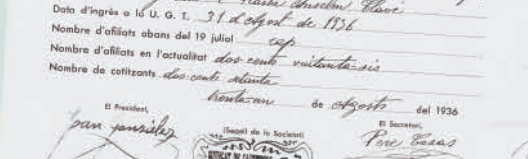 Anselm Clavé
Data d'ingrés a la U. G. T. 31 d'Agost de 1936
Nombre d'afiliats abans del 19 juliol cap
Nombre d'afiliats en l'actualitat dos-cents vuitanta-sis
Nombre de cotitzants dos-cents setanta
trenta-un de Agosto del 1936
El President, (Segell de la Societat) El Secretari,
Joan González Pere Casas